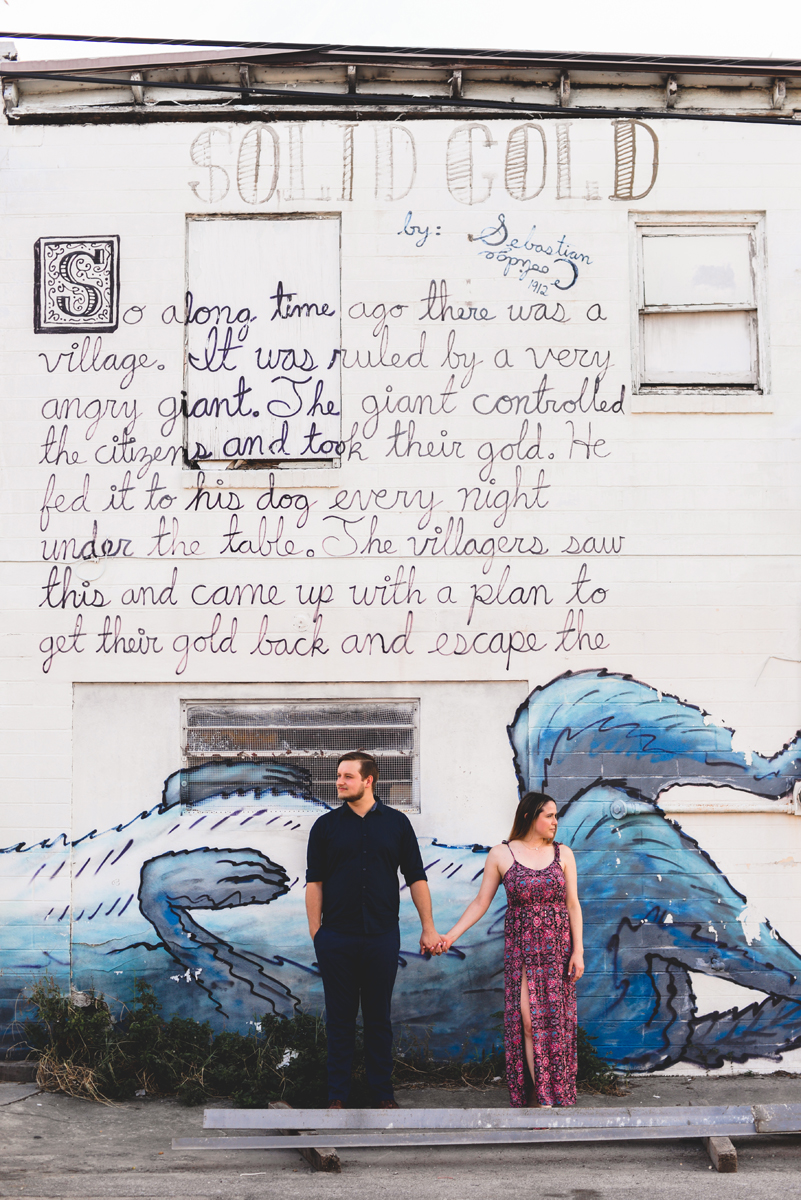 SOLID GOLD
by: Sebastian
Coolidge
1912
So along time ago there was a
village. It was ruled by a very
angry giant. The giant controlled
the citizens and took their gold. He
fed it to his dog every night
under the table. The villagers saw
this and came up with a plan to
get their gold back and escape the